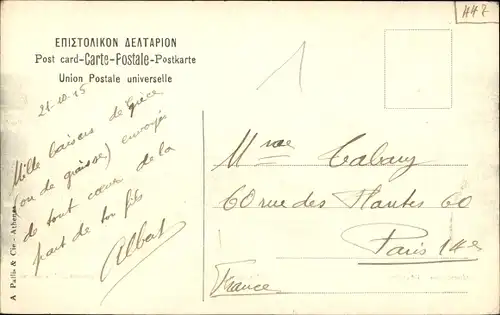 A47
ΕΠΙΣΤΟΛΙΚΟΝ ΔΕΛΤΑΡΙΟΝ
Post card-Carte-Postale-Postkarte
Union Postale universelle
21-10-15
Mille baisers de Grèce
(ou de graisse) envoyés
de tout cœur de la
part de ton fils
Albert
A Pallis & Cie - Athènes
Mme Cabany
60 rue des Plantes 60
Paris 14e
France